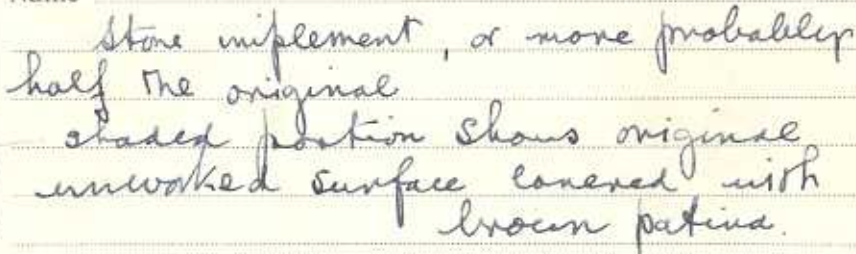 Stone implement, or more probably
half the original
shaded portion shows original
unworked surface covered with
brown patina.